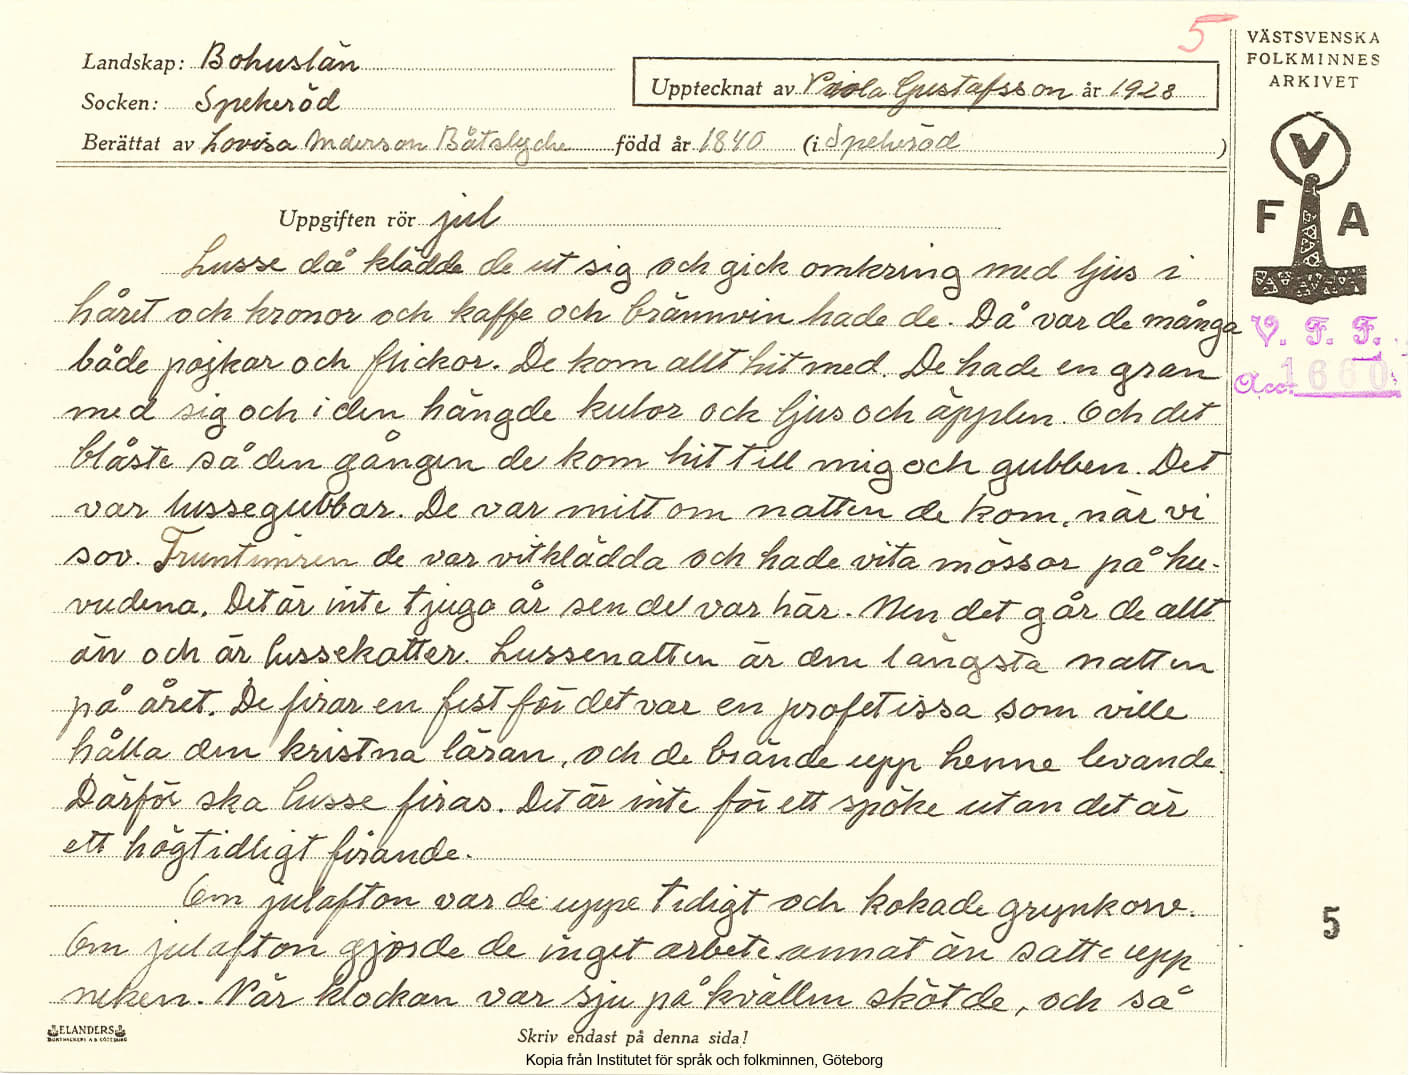 5
VÄSTSVENSKA
FOLKMINNES
ARKIVET
Landskap: Bohuslän
Socken: Spekeröd
Upptecknat av Viola Gustafsson år 1928
Berättat av Lovisa Anderson Båtslyche född år 1840 (i Spekeröd )
V
F A
V. F. F.
Acc. 1660
Uppgiften rör jul
Lusse då klädde de ut sig och gick omkring med ljus i
håret och kronor och kaffe och brännvin hade de. Då var de många
både pojkar och flickor. De kom allt hit med. De hade en gran
med sig och i den hängde kulor och ljus och äpplen. Och det
blåste så den gången de kom hit till mig och gubben. Det
var lussegubbar. De var mitt om natten de kom, när vi
sov. Fruntimren de var vitklädda och hade vita mössor på hu-
vudena. Det är inte tjugo år sen de var här. Men det går de allt
än och är lussekatter. Lussenatten är den längsta natten
på året. De firar en fest för det var en profetissa som ville
hålla den kristna läran, och de brände upp henne levande.
Därför ska lusse firas. Det är inte för ett spöke utan det är
ett högtidligt firande.
Om julafton var de uppe tidigt och kokade grynkorv.
Om julafton gjorde de inget arbete annat än satte upp
neken. När klockan var sju på kvällen sköt de, och så
5
ELANDERS
BOKTRYCKERI A B GÖTEBORG
Skriv endast på denna sida!
Kopia från Institutet för språk och folkminnen, Göteborg